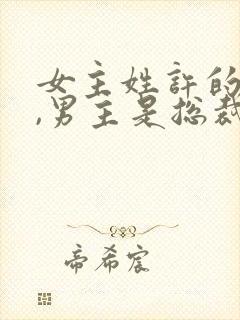 女主姓許的
,男主是总裁
帝希宸